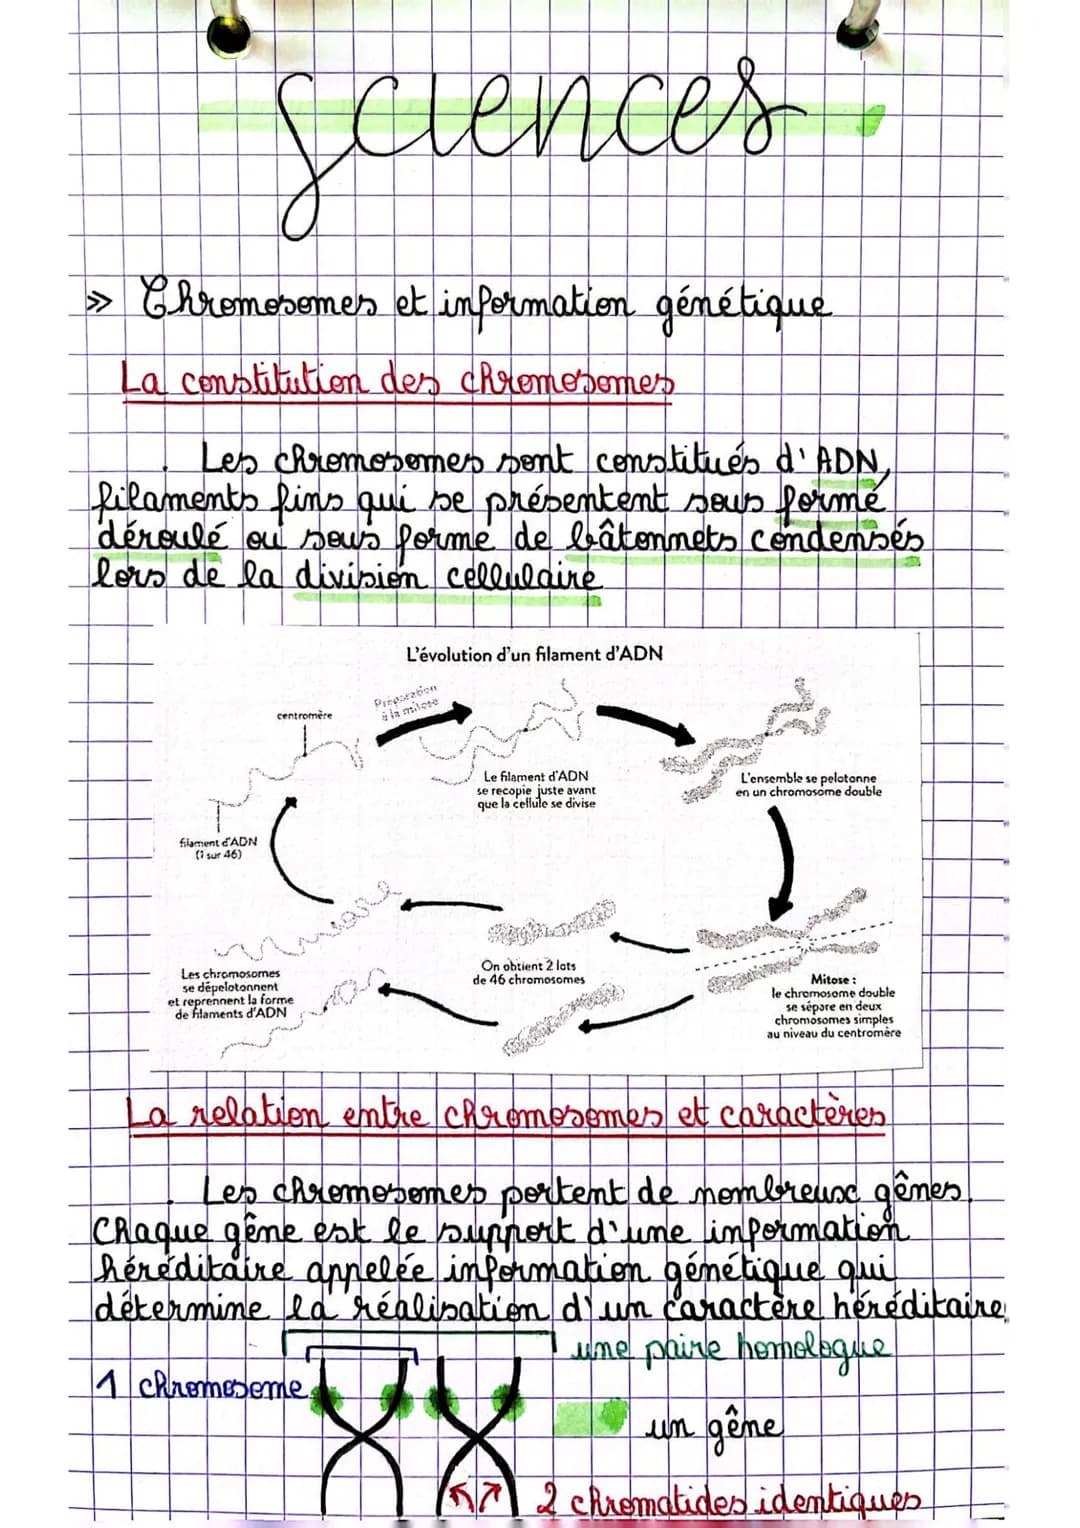 sciences
» Chromosomes et information génétique
La constitution des chromosomes
Les chromosomes sont constitués d'ADN,
filaments fins qui se présentent sous forme
déroulé ou sous forme de bâtonnets condensés
lors de la division cellulaire
L'évolution d'un filament d'ADN
Préparation
à la mitose
centromère
Le filament d'ADN
se recopie juste avant
que la cellule se divise
L'ensemble se pelotonne
en un chromosome double
filament d'ADN
(1 sur 46)
Les chromosomes
se dépelotonnent
et reprennent la forme
de filaments d'ADN
On obtient 2 lots
de 46 chromosomes
Mitose :
le chromosome double
se sépare en deux
chromosomes simples
au niveau du centromère
La relation entre chromosomes et caractères
Les chromosomes portent de nombreux gênes.
Chaque gêne est le support d'une information
héréditaire appelée information génétique qui
détermine la réalisation d'un caractère héréditaire
une paire homologue
1 chromosome
un gêne
2 chromatides identiques